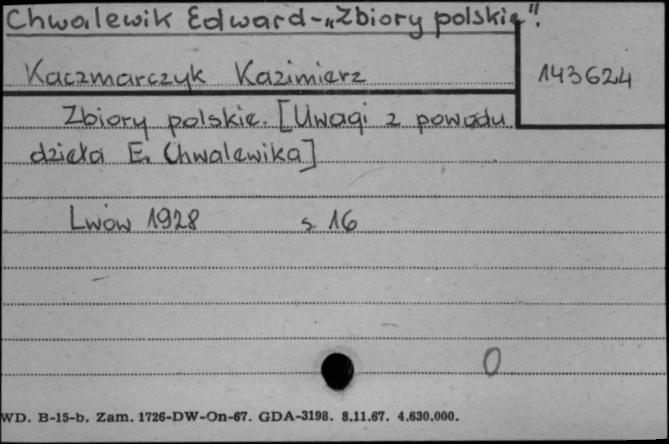 Chwalewik Edward - „Zbiory polskie".
Kaczmarczyk Kazimierz
143624
Zbiory polskie. [Uwagi z powodu
dzieła E. Chwalewika]
Lwów 1928 s. 16
0
WD. B-15-b. Zam. 1726-DW-On-67. GDA-3198. 8.11.67. 4.630.000.